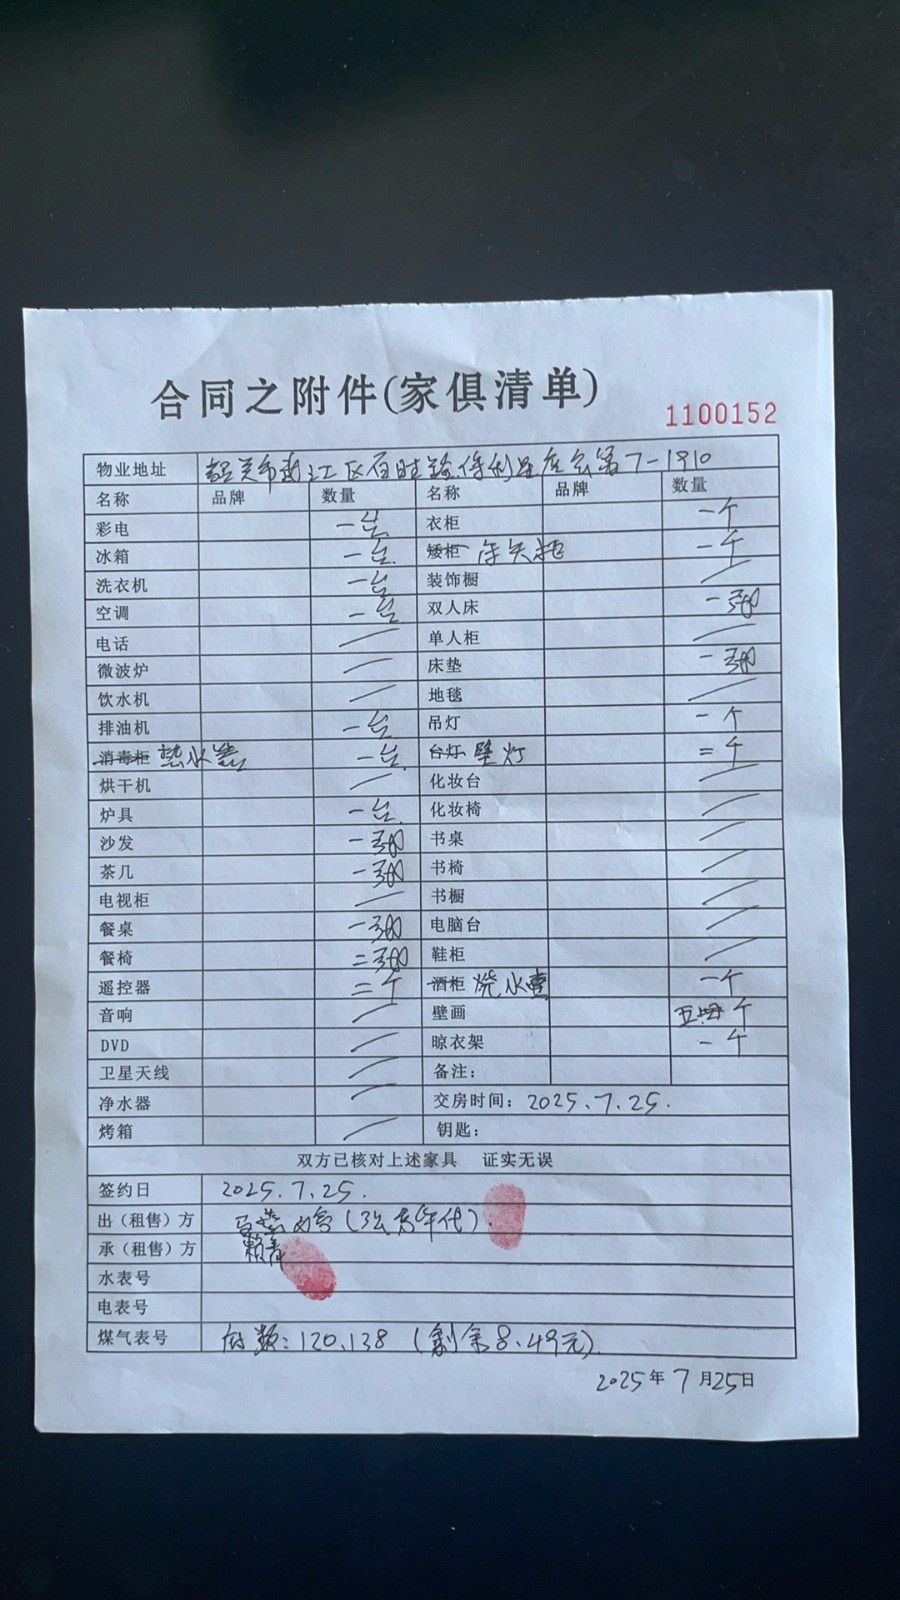 合同之附件(家俱清单)
1100152
物业地址 韶关市曲江区百旺路保利 7-1910
名称 品牌 数量 名称 品牌 数量
彩电 一台 衣柜 一个
冰箱 一台 矮柜 床头柜 一个
洗衣机 一台 装饰橱
空调 一台 双人床 一张
电话 单人柜
微波炉 床垫 一张
饮水机 地毯
排油机 一台 吊灯 一个
消毒柜 热水器 一台 台灯 壁灯 二个
烘干机 化妆台
炉具 一台 化妆椅
沙发 一张 书桌
茶几 一张 书椅
电视柜 书橱
餐桌 一张 电脑台
餐椅 二张 鞋柜
遥控器 二个 酒柜 烧水壶 一个
音响 壁画 五 个
DVD 晾衣架 一个
卫星天线 备注:
净水器 交房时间: 2025.7.25.
烤箱 钥匙:
双方已核对上述家具 证实无误
签约日 2025.7.25.
出（租售）方
承（租售）方 赖青
水表号
电表号
煤气表号 底数:120.138 (剩余8.49元).
2025年7月25日